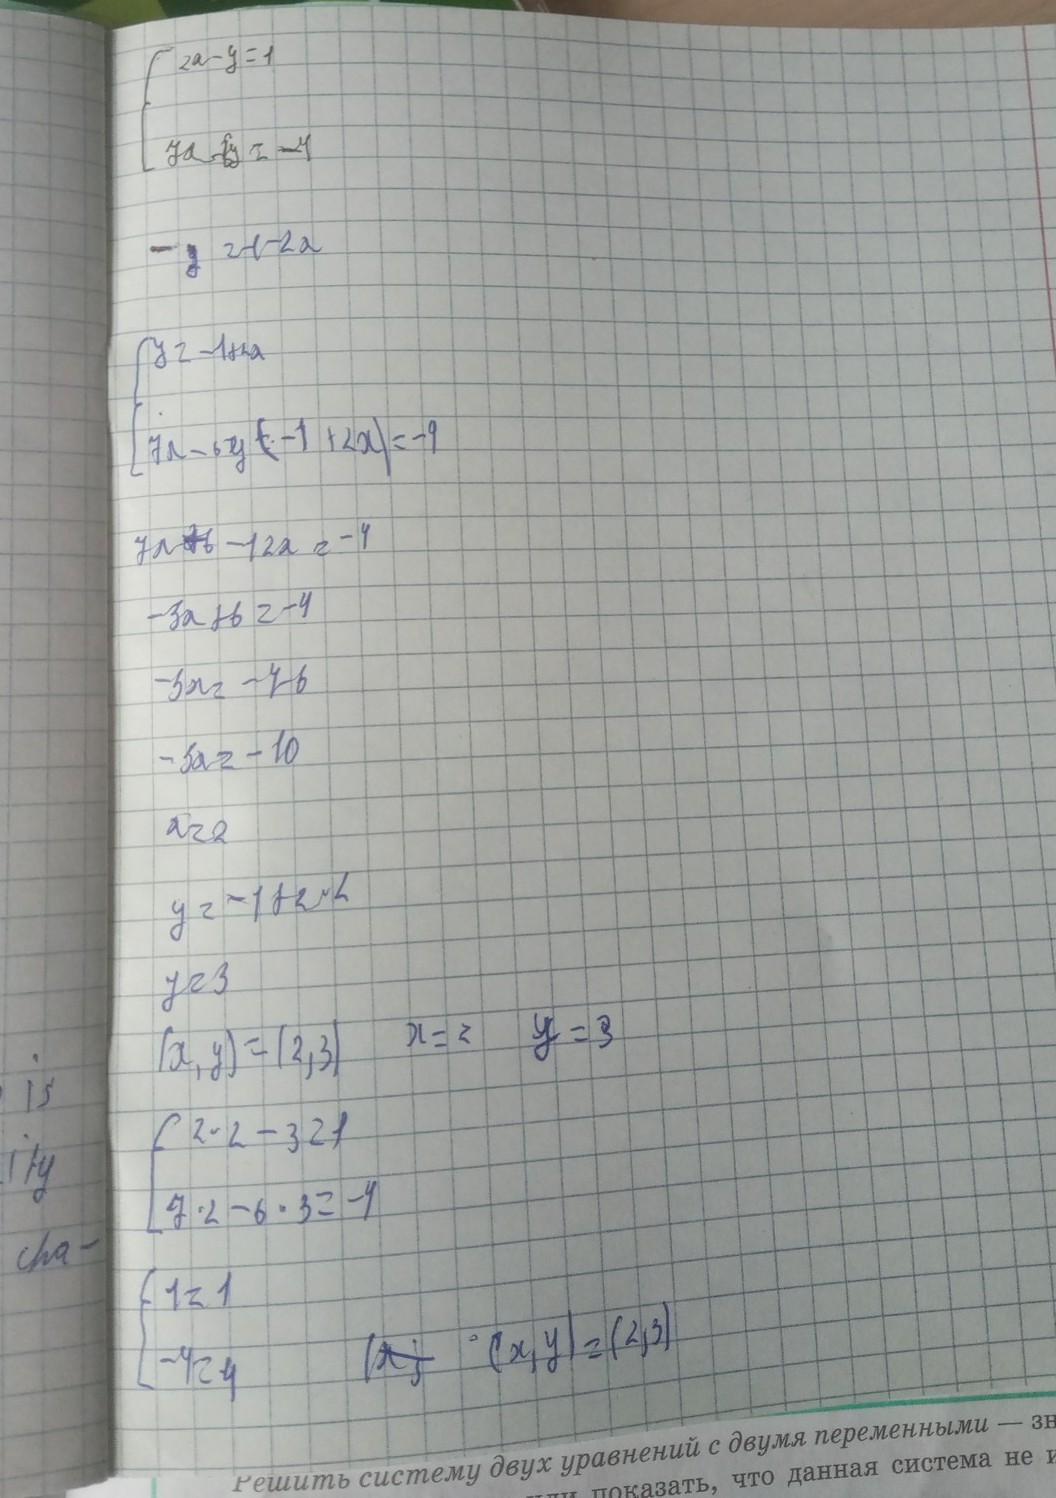 2x-y=1
7x-6y=-4
-y=1-2x
y=-1+2x
7x-6y(-1+2x)=-4
7x+6-12x=-4
-5x+6=-4
-5x=-4-6
-5x=-10
x=2
y=-1+2·2
y=3
(x,y)=(2,3) x=2 y=3
2·2-3=1
7·2-6·3=-4
1=1
-4=4 (x,y)=(2,3)
is
ity
cha-
Решить систему двух уравнений с двумя переменными — зн
показать, что данная система не и